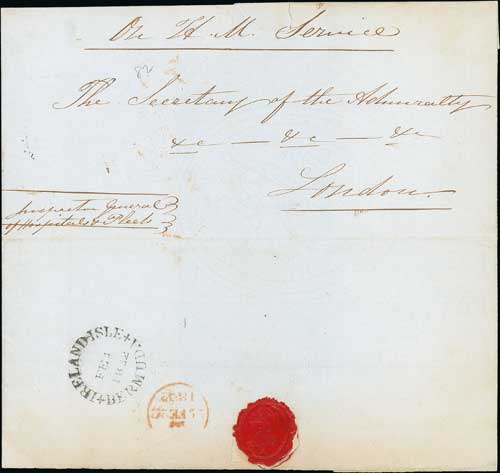 On H. M. Service
The Secretary of the Admiralty
&c — &c — &c
London.
Inspector General
of Hospitals & Fleets
IRELAND ISLE + BERMUDA +
FE